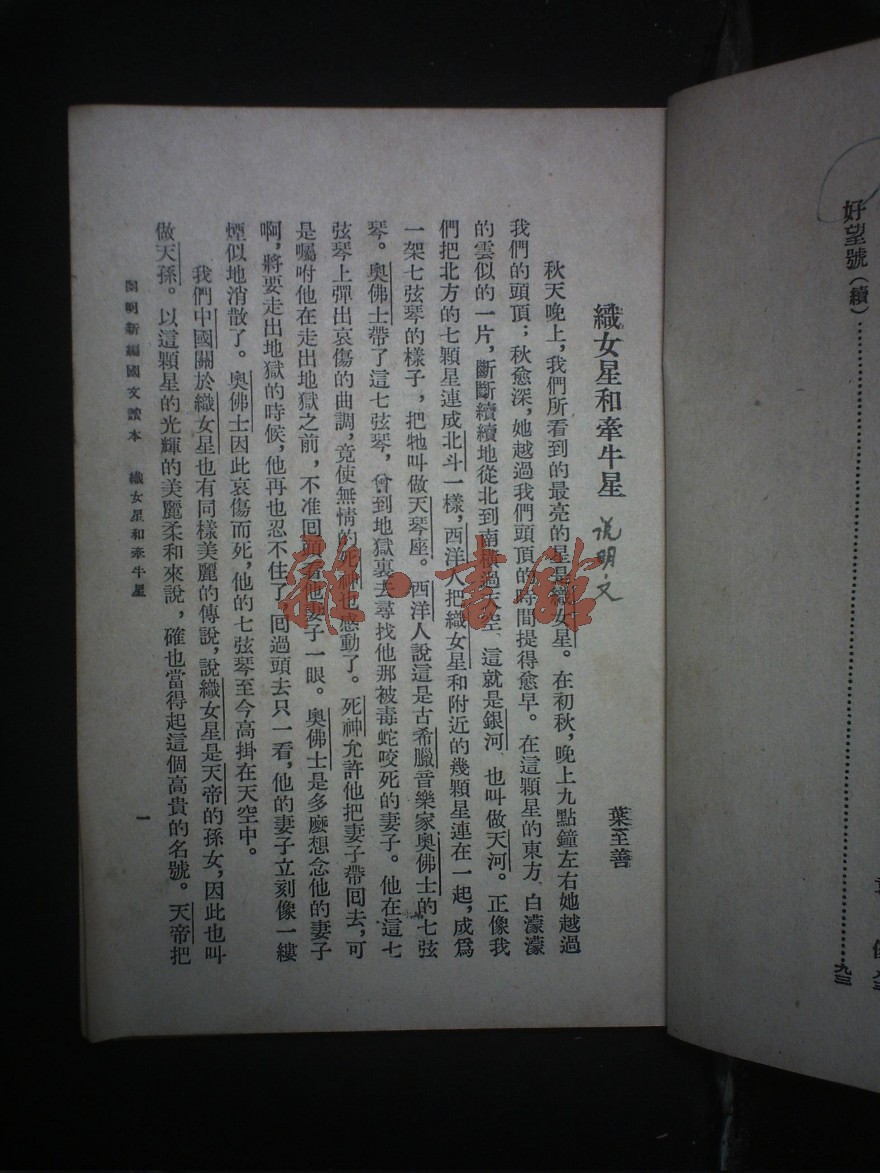 好望號（續）……………………九三
織女星和牽牛星
说明文
葉至善
秋天晚上，我們所看到的最亮的星是織女星。在初秋，晚上九點鐘左右她越過
我們的頭頂；秋愈深，她越過我們頭頂的時間提得愈早。在這顆星的東方，白濛濛
的雲似的一片，斷斷續續地從北到南橫過天空，這就是銀河，也叫做天河。正像我
們把北方的七顆星連成北斗一樣，西洋人把織女星和附近的幾顆星連在一起，成爲
一架七弦琴的樣子，把牠叫做天琴座。西洋人說這是古希臘音樂家奧佛士的七弦
琴。奧佛士帶了這七弦琴，曾到地獄裏去尋找他那被毒蛇咬死的妻子。他在這七
弦琴上彈出哀傷的曲調，竟使無情的死神也感動了。死神允許他把妻子帶囘去，可
是囑咐他在走出地獄之前，不准囘頭看他妻子一眼。奧佛士是多麼想念他的妻子
啊，將要走出地獄的時候，他再也忍不住了，囘過頭去只一看，他的妻子立刻像一縷
煙似地消散了。奧佛士因此哀傷而死，他的七弦琴至今高掛在天空中。
我們中國關於織女星也有同樣美麗的傳說，說織女星是天帝的孫女，因此也叫
做天孫。以這顆星的光輝的美麗柔和來說，確也當得起這個高貴的名號。天帝把
開明新編國文讀本　織女星和牽牛星
一
雜·書館